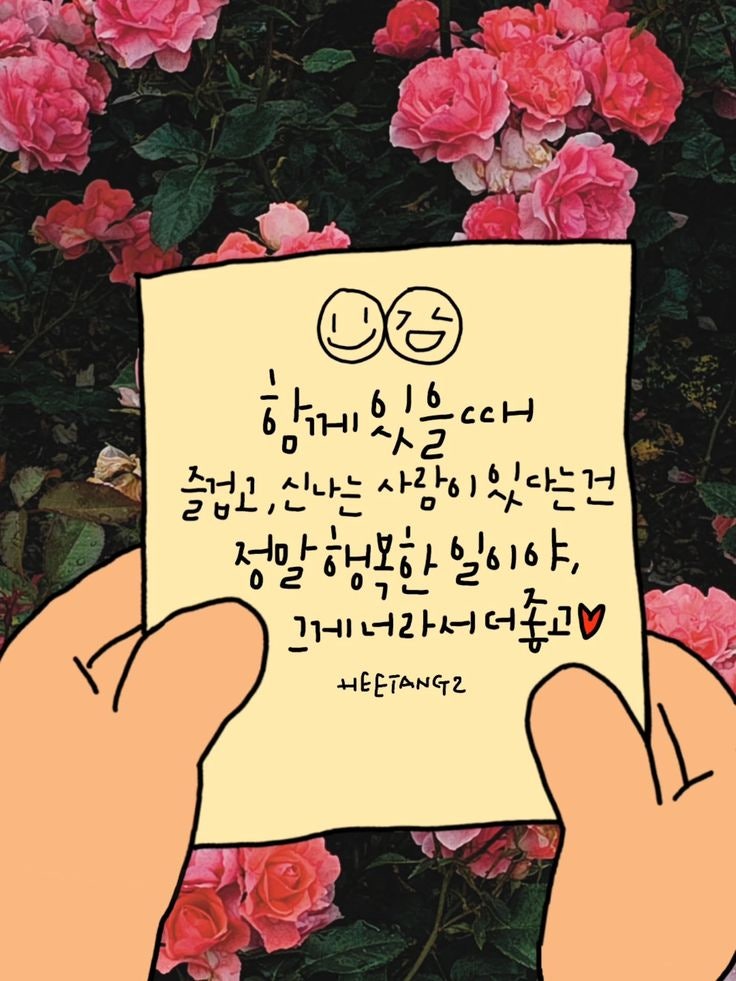 함께 잇을 때
즐겁고, 신나는 사람이 잇다는 건
정말 행복한 일이야,
그게 너라서 더 좋고
HEETANG2